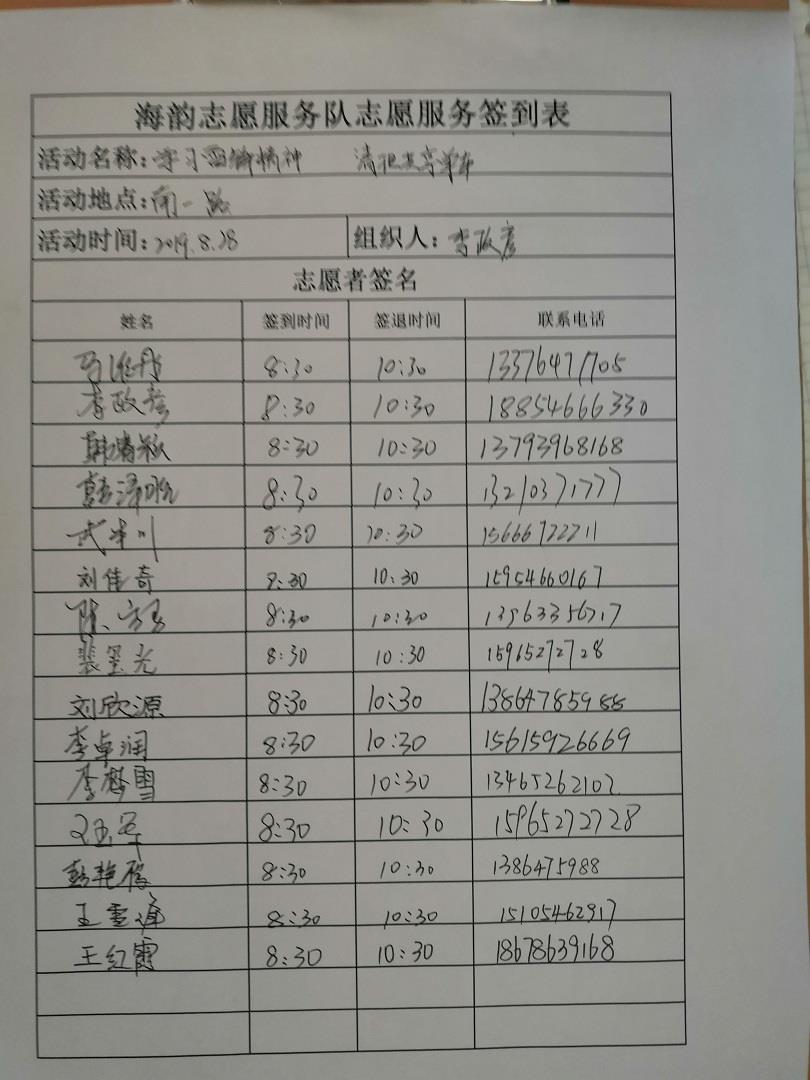 海韵志愿服务队志愿服务签到表
活动名称:学习雷锋精神 清理共享单车
活动地点:南一路
活动时间:2019.8.28 组织人:李政彦
志愿者签名
姓名 签到时间 签退时间 联系电话
8:30 10:30 13376471705
李政彦 8:30 10:30 18854666330
韩清秋 8:30 10:30 13793968168
8:30 10:30 13210371777
武丰川 8:30 10:30 15666722211
刘佳奇 8:30 10:30 15954660167
8:30 10:30
裴墨光 8:30 10:30 15965272728
刘欣源 8:30 10:30 13864785988
李卓润 8:30 10:30 15615926669
李梦雪 8:30 10:30 13465262102
8:30 10:30 15965272728
彭艳霞 8:30 10:30 1386475988
王雪峰 8:30 10:30 15105462917
王红霞 8:30 10:30 18678639168